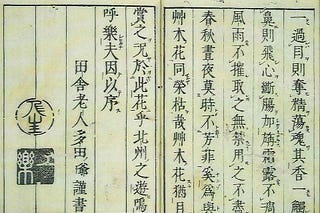 一過目則奪精蕩魂其香一觸
鼻則飛心斷腸加旃霜露不凋
風雨不摧取之無禁用之不盡
春秋晝夜莫時不芳菲奚為與
艸木花同榮枯哉艸木花猶且
賞之況於此花乎北州之遊嗚
呼樂夫因以序
田舍老人多田爺謹書